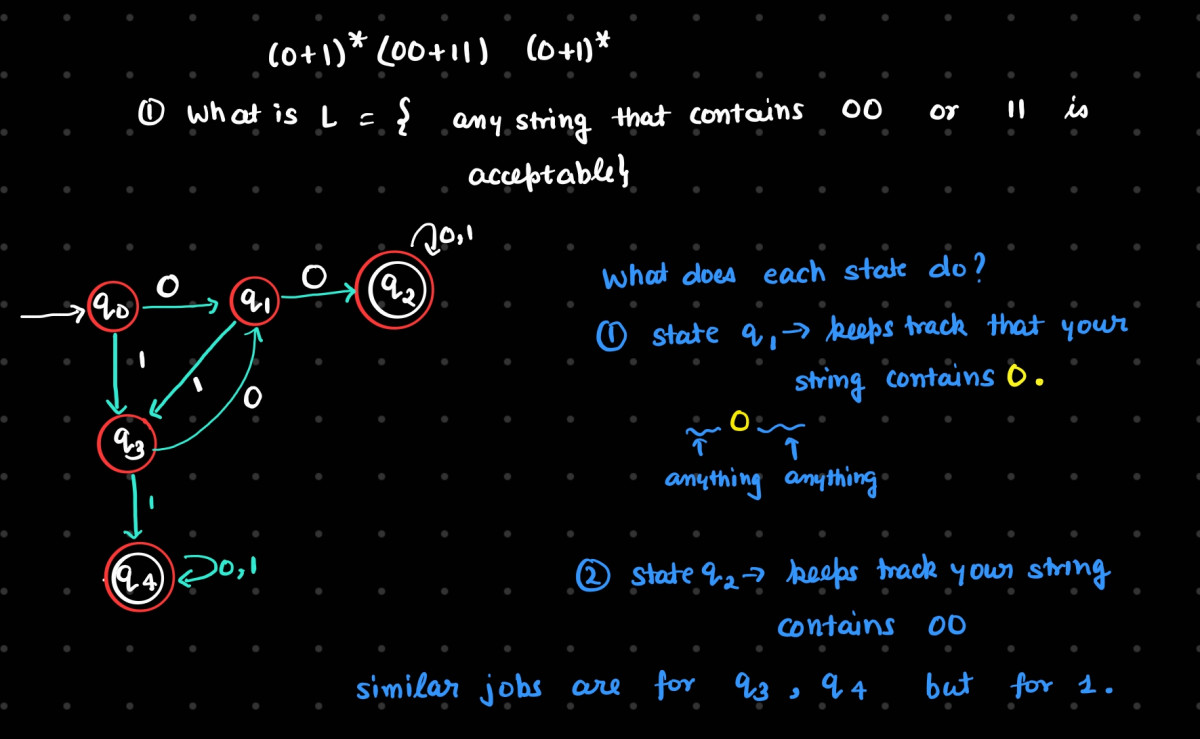 (0+1)* (00+11) (0+1)*
① What is L = { any string that contains 00 or 11 is
acceptable}
0,1
q0 0 q1 0 q2
1
1
0
q3
1
q4 0,1
What does each state do?
① state q1 → keeps track that your
string contains 0.
0
↑ ↑
anything anything
② state q2 → keeps track your string
contains 00
similar jobs are for q3, q4 but for 1.